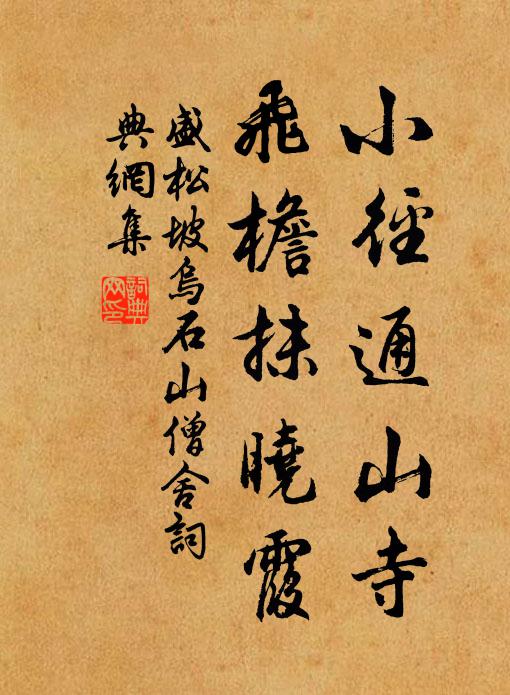 小徑通山寺
飛檐抹曉霞
盛松坡烏石山僧舍詞
典網集
詞典
网印